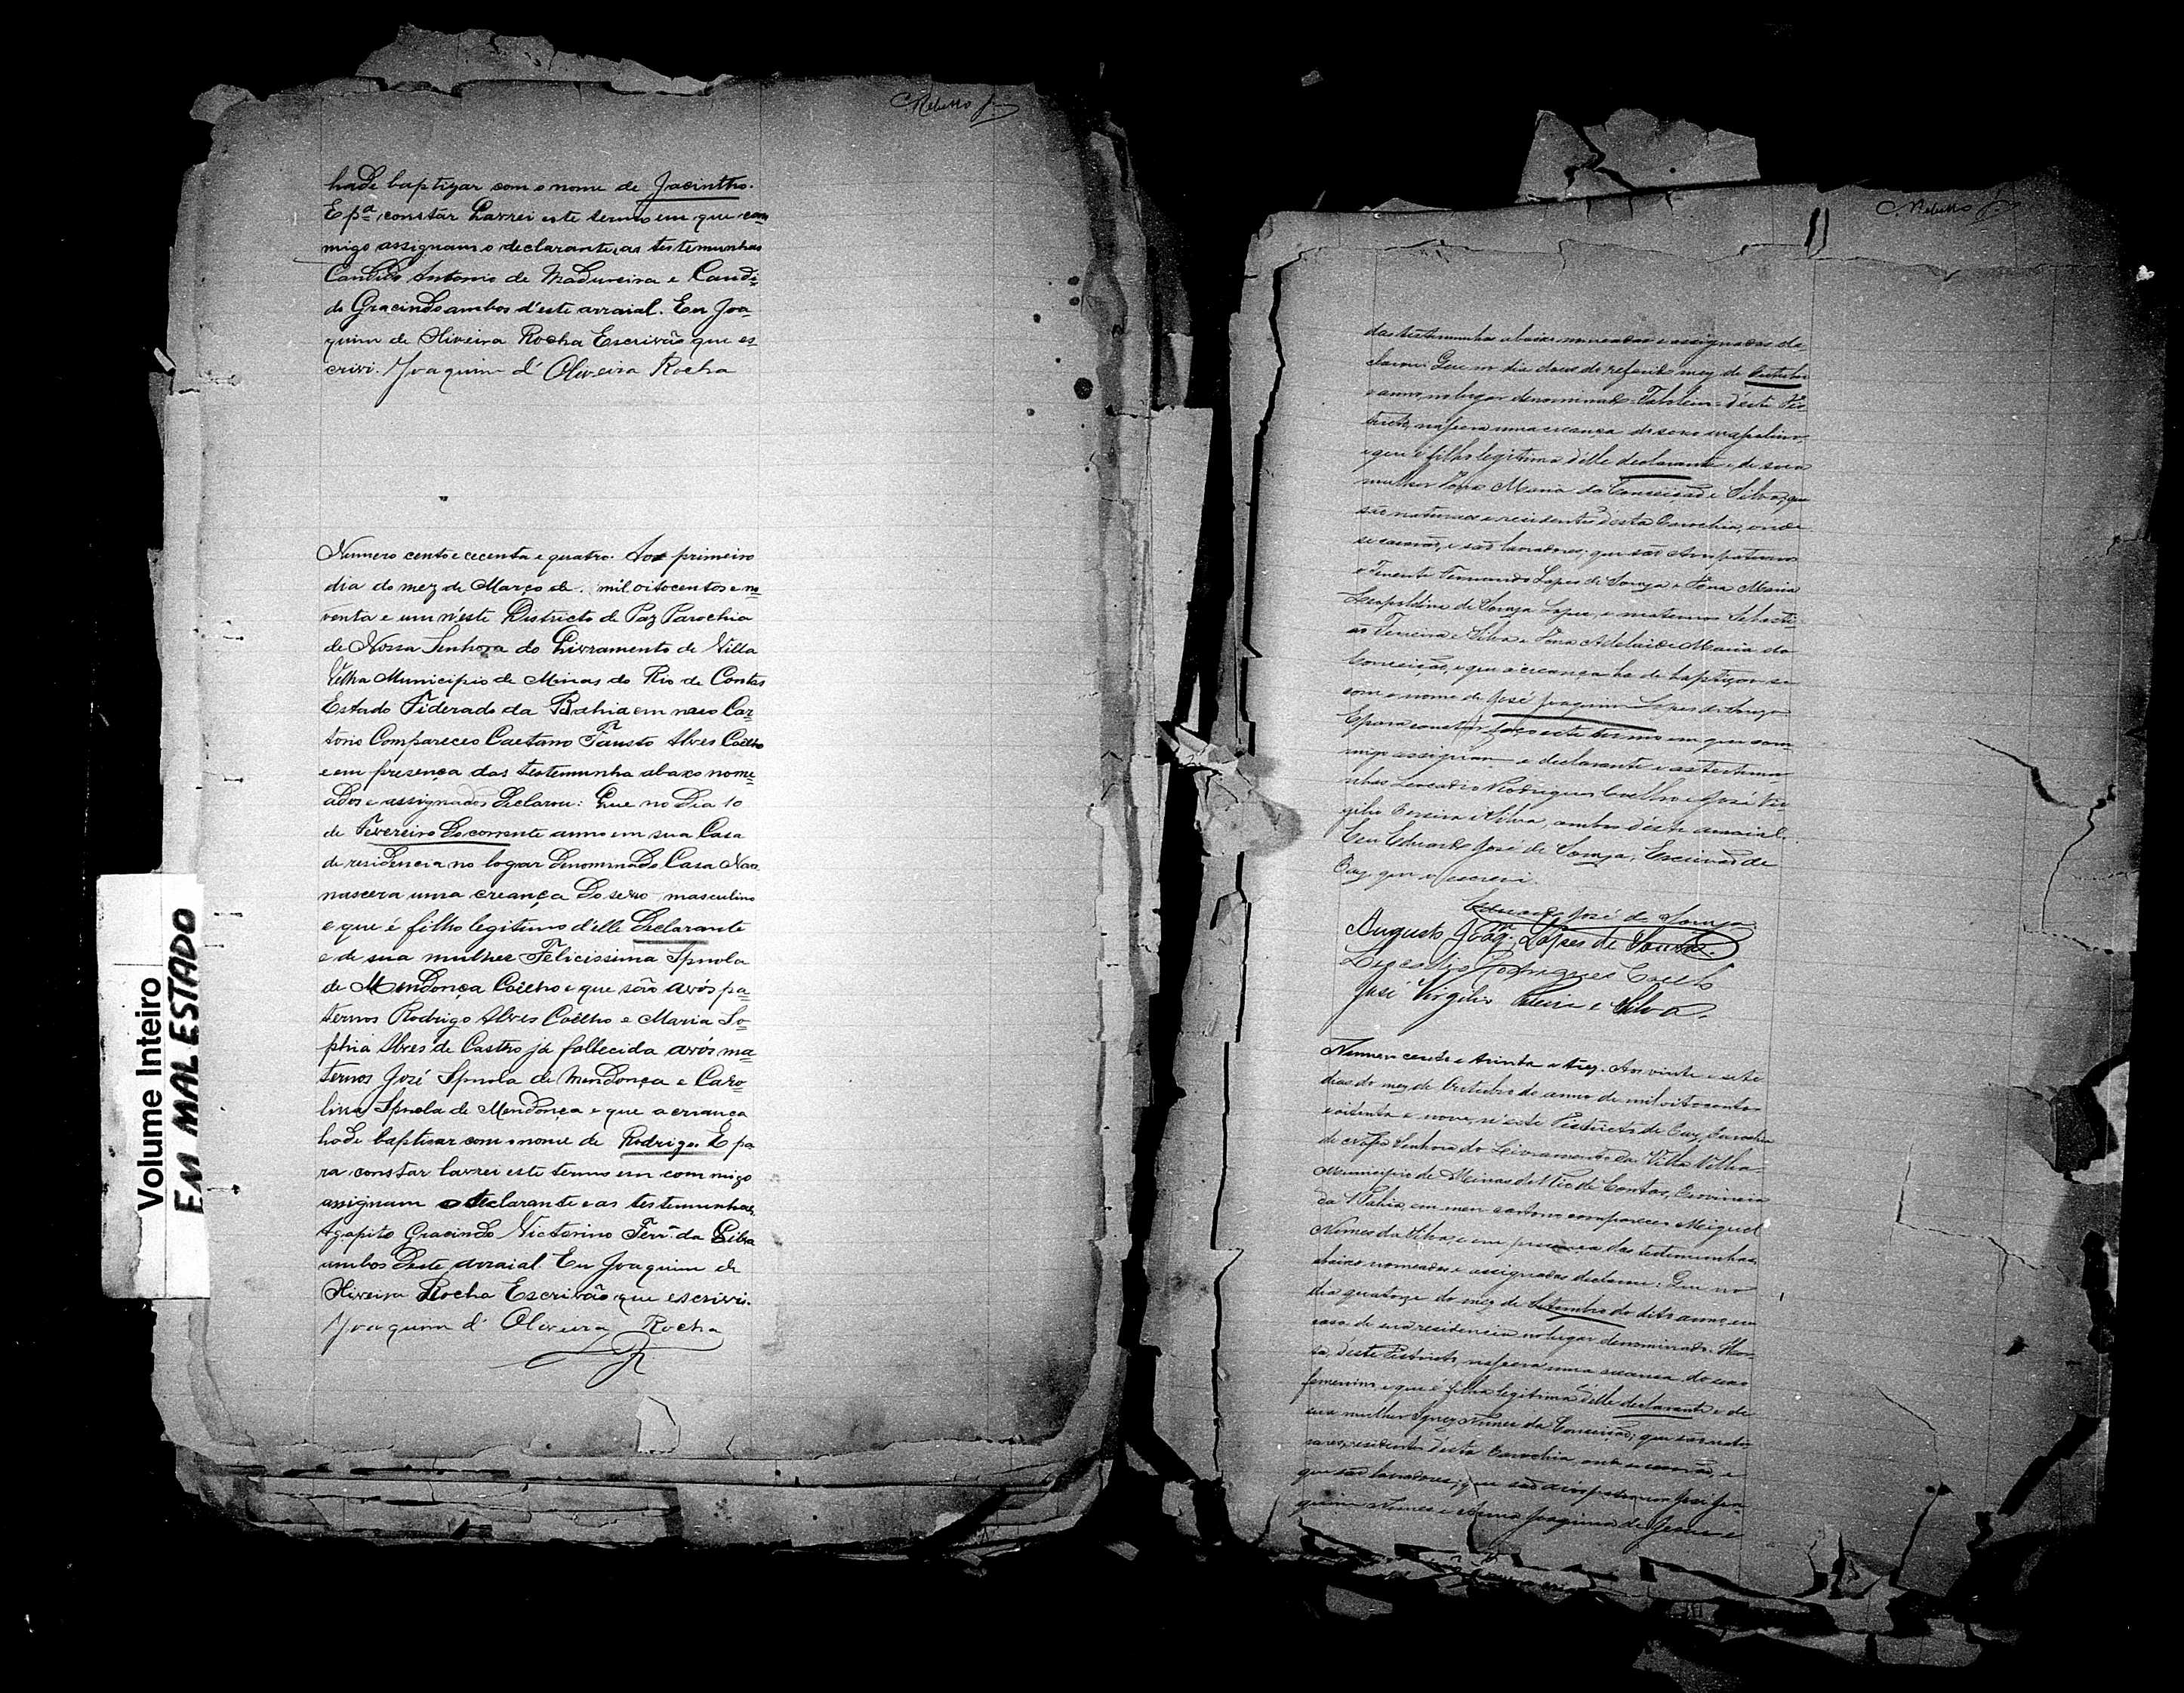 Rebello Jr
hade baptizar com o nome de Jacintho.
E pª constar Lavrei este termo em que com
migo assignam o declarante, as testemunhas
Candido Antonio de Madureira e Candi=
do Gracindo ambos d'este arraial. Eu Joa=
quim de Oliveira Rocha Escrivão que es
crivi. Joaquim d'Oliveira Rocha
Numero cento e cecenta e quatro. Aos primeiro
dia do mez de Março de mil oitocentos e no=
venta e um n'este Districto de Paz Parochia
de Nossa Senhora do Livramento de Villa
Velha Municipio de Minas do Rio de Contas
Estado Federado da Bahia em meo Car=
torio Compareceo Caetano Fausto Alves Coelho
e em presença das testemunha abaxo nome=
ados e assignados Declarou: Que no Dia 10
de Fevereiro do corrente anno em sua Casa
de residencia no logar Denominado Casa Nova
nascera uma creança Do sexo masculino
e que é filho legitimo d'elle Declarante
e de sua mulher Felicissima Spnola
de Mendonça Coelho e que são avós pa=
ternos Rodrigo Alves Coêlho e Maria So=
phia Alves de Castro já fallecida avós ma=
ternos José Spnola de Mendonça e Caro=
lina Spnola de Mendonça e que a criança
hade baptisar com o nome de Rodrigo. E pa=
ra constar lavrei este termo em com migo
assignam o declarante e as testemunhas,
Agapito Gracindo Victorino Ferrª da Silva
ambos Deste arraial Eu Joaquim de
Oliveira Rocha Escrivão que escrivi.
Joaquim d'Oliveira Rocha
Volume Inteiro
EM MAL ESTADO
Rebello Jr
das testemunhas abaixo nomeadas e assignadas de
clarou: Que no dia doze do referido mez de Outubro
e anno, no lugar denominado Taboleiro d'este Dis
tricto, nascera uma creança do sexo masculino
e que é filho legitimo d'elle declarante e de sua
mulher Dona Maria da Conceição e Silva, que
são naturaes e residentes desta Parochia, onde
se casarão, e são lavradores; que são Avos paternos
o Tenente Fernando Lopes de Souza e Dona Maria
Leopoldina de Souza Lopes, e maternos Sebasti=
ão Ferreira e Silva e Dona Adelaide Maria da
Conceição, e que a creança ha de baptizar-se
com o nome de José Joaquim Lopes de Souza
E para constar faço este termo em que com
migo assignam o declarante e as testemu
nhas Leocadio Rodrigues Coelho e José Vir
gilio Pereira e Silva, ambos d'este arraial.
Eu Eduardo José de Souza, Escrivão de
Paz que o escrevi.
Eduardo José de Souza
Augusto Joaqm Lopes de Souza.
Leocadio Rodrigues Coelho
José Virgilio Pereira e Silva.
Numero cento e trinta e trez. Aos vinte e sete
dias do mez de Outubro do anno de mil oitocentos
e oitenta e nove, n'este Districto de Paz, Parochia
de Nossa Senhora do Livramento da Villa Velha
Municipio de Minas do Rio de Contas, Provincia
da Bahia, em meu cartorio compareceo Miguel
Nunes da Silva e em presença das testemunhas
abaixo nomeadas e assignadas declarou: Que no
dia quatorze do mez de Setembro do dito anno, em
casa de sua residencia no lugar denominado
d'este Districto, nascera uma creança do sexo
femenino e que é filha legitima d'elle declarante e de
sua mulher Ignez Nunes da Conceição; que são natu
raes, residentes d'esta Parochia, onde se casarão, e
que são lavradores; que são avós paternos José Joa
quim Nunes e Anna Joaquina de Jesus e